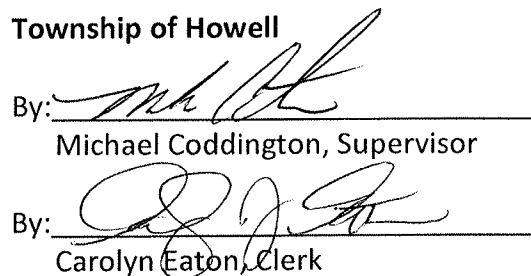 Township of Howell
By:
Michael Coddington, Supervisor
By:
Carolyn Eaton, Clerk